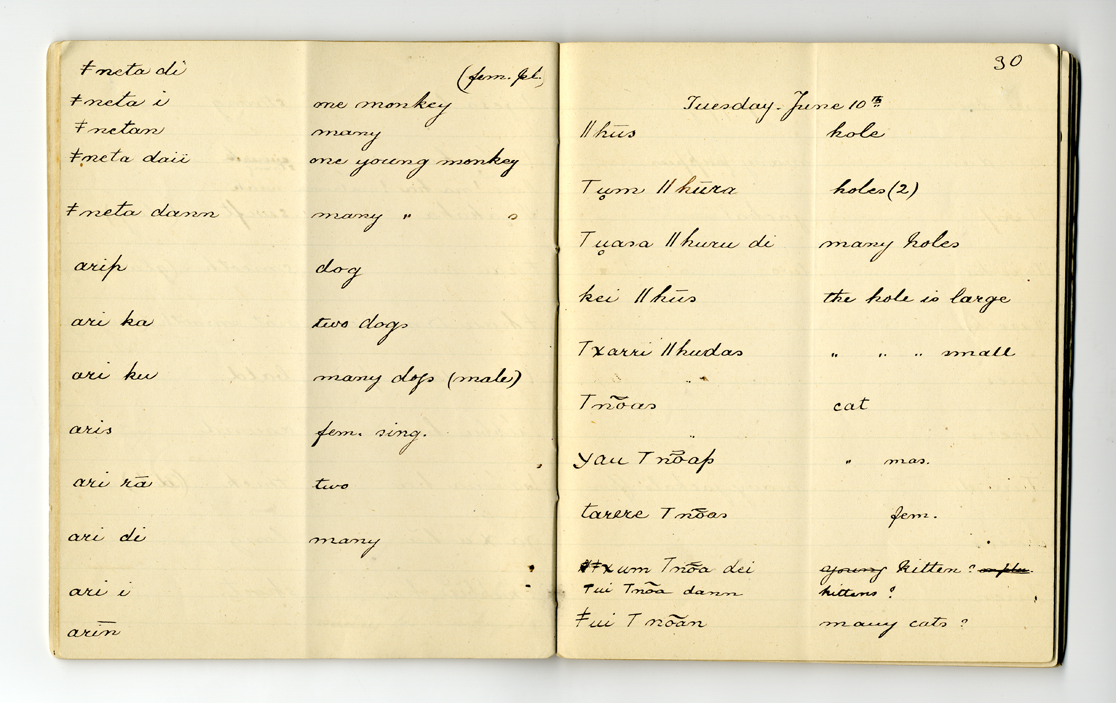 ǂneta di (fem. pl.)
ǂneta i one monkey
ǂnetan many
ǂneta daii one young monkey
ǂneta dann many "
arip dog
ari ka two dogs
ari ku many dogs (male)
aris fem. sing.
ari rā two
ari di many
ari i
arin̄
30
Tuesday. June 10th
ǁhūs hole
Tu̥m ǁhūra holes (2)
Tu̥asa ǁhuru di many holes
kei ǁhūs the hole is large
Tχarri ǁhudas " " " small
Tnõas cat
yau Tnõap " mas.
tarere Tnõas fem.
ǂχum Tnõa dei young kitten?
Tui Tnõa dann kittens?
ǂui Tnõan many cats?